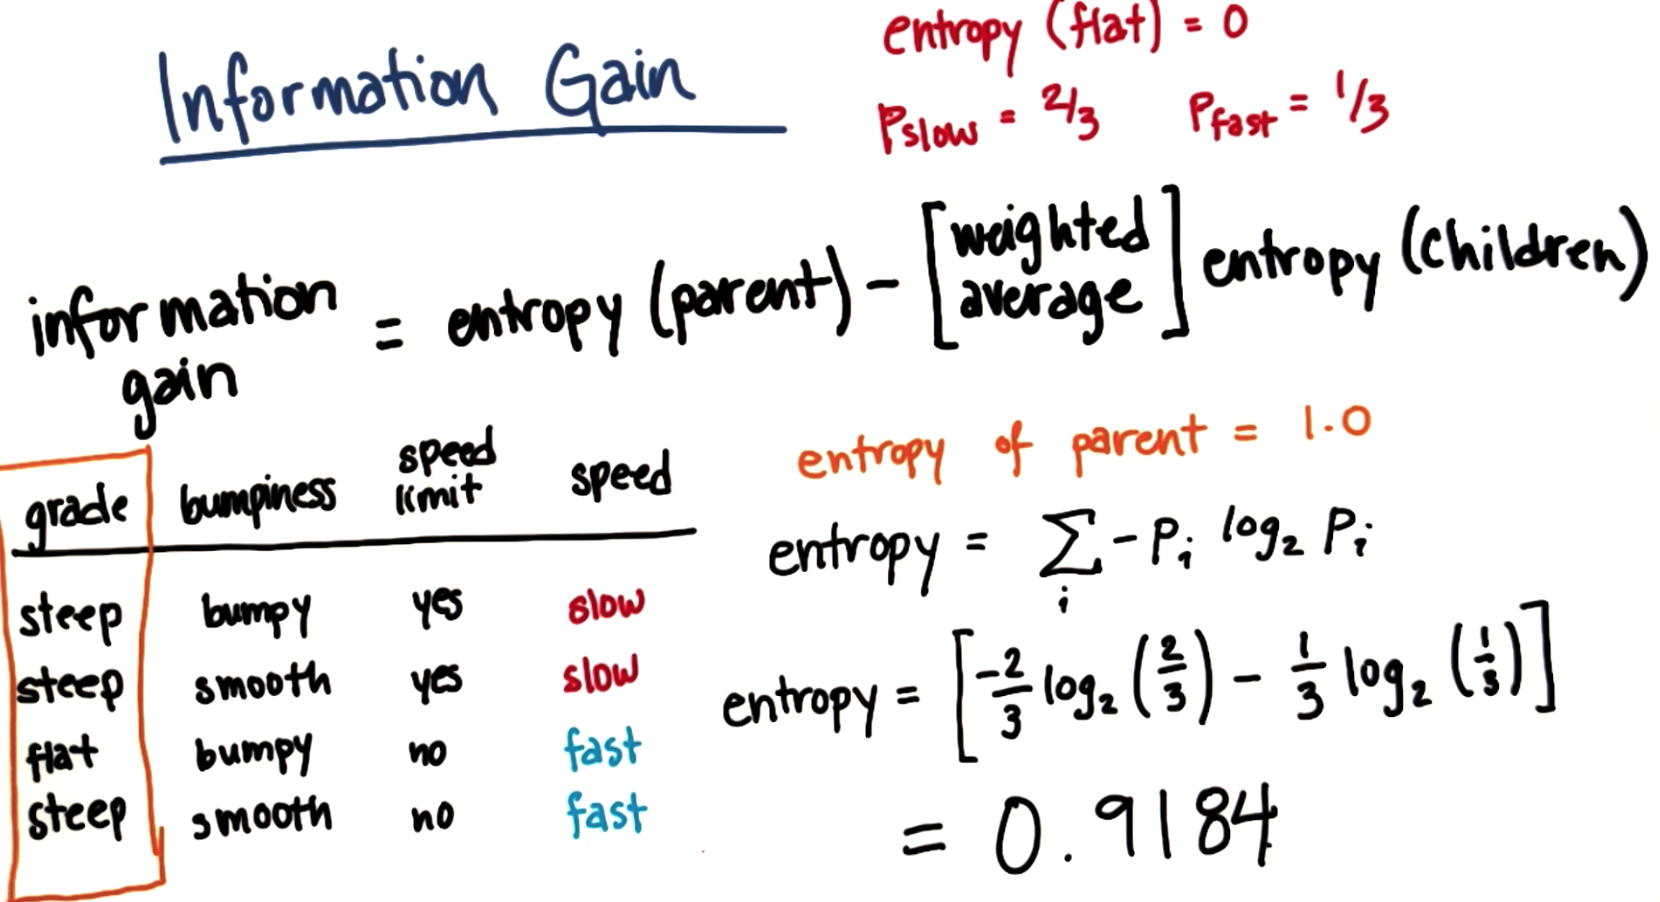 Information Gain
entropy (flat) = 0
Pslow = 2/3 Pfast = 1/3
information gain = entropy (parent) - [weighted average] entropy (children)
grade bumpiness speed limit speed
steep bumpy yes slow
steep smooth yes slow
flat bumpy no fast
steep smooth no fast
entropy of parent = 1.0
entropy = ∑i -Pi log2 Pi
entropy = [-2/3 log2 (2/3) - 1/3 log2 (1/3)]
= 0.9184